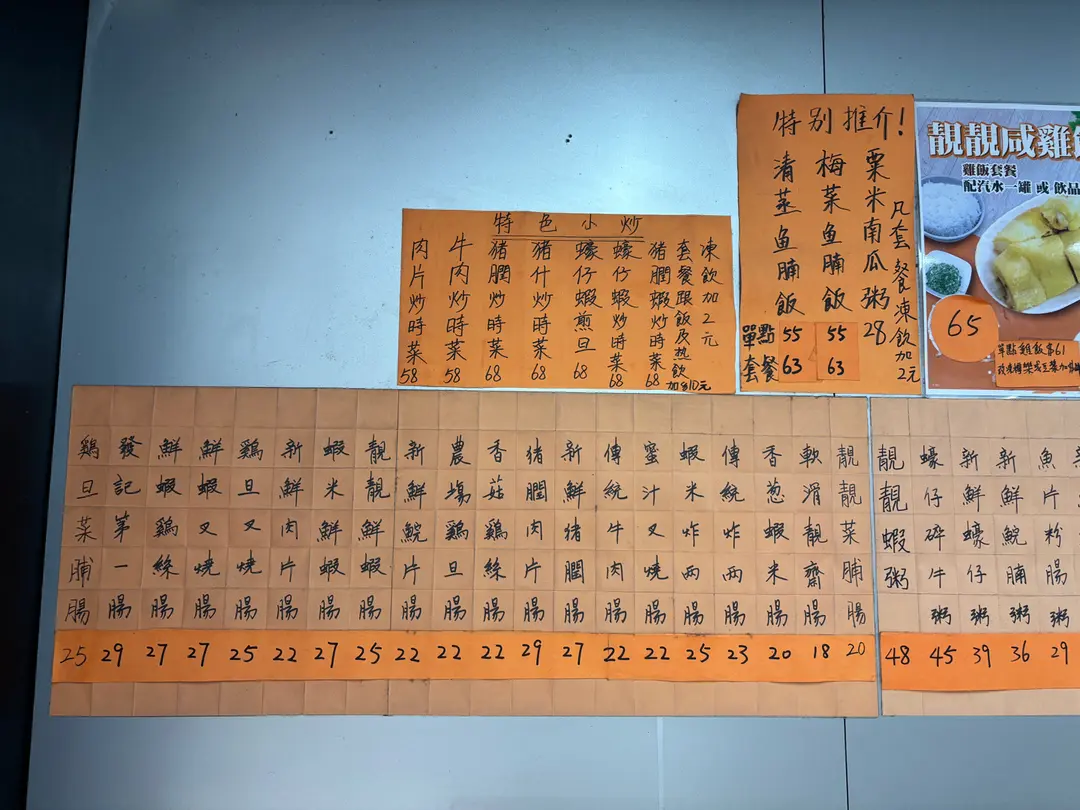 特色小炒
肉片炒時菜 58
牛肉炒時菜 58
猪膶炒時菜 68
猪什炒時菜 68
蠔仔蝦煎旦 68
蠔仔蝦炒時菜 68
猪膶蝦炒時菜 68
套餐跟飯及熱飲加多10元
凍飲加2元
特别推介!
清蒸鱼腩飯
梅菜鱼腩飯
粟米南瓜粥 28
凡套餐凍飲加2元
單點 55 55
套餐 63 63
靚靚咸雞
雞飯套餐
配汽水一罐 或 飲品
65
鷄旦菜脯腸 25
發記第一腸 29
鮮蝦鷄絲腸 27
鮮蝦叉燒腸 27
鷄旦叉燒腸 25
新鮮肉片腸 22
蝦米鮮蝦腸 27
靚靚鮮蝦腸 25
新鮮鯇片腸 22
農塲鷄旦腸 22
香菇鷄絲腸 22
猪膶肉片腸 29
新鮮猪膶腸 27
傳統牛肉腸 22
蜜汁叉燒腸 22
蝦米炸兩腸 25
傳統炸兩腸 23
香葱蝦米腸 20
軟滑靚齋腸 18
靚靚菜脯腸 20
靚靚蝦粥 48
蠔仔碎牛粥 45
新鮮蠔仔粥 39
新鮮鯇腩粥 36
魚片粉腸粥 29